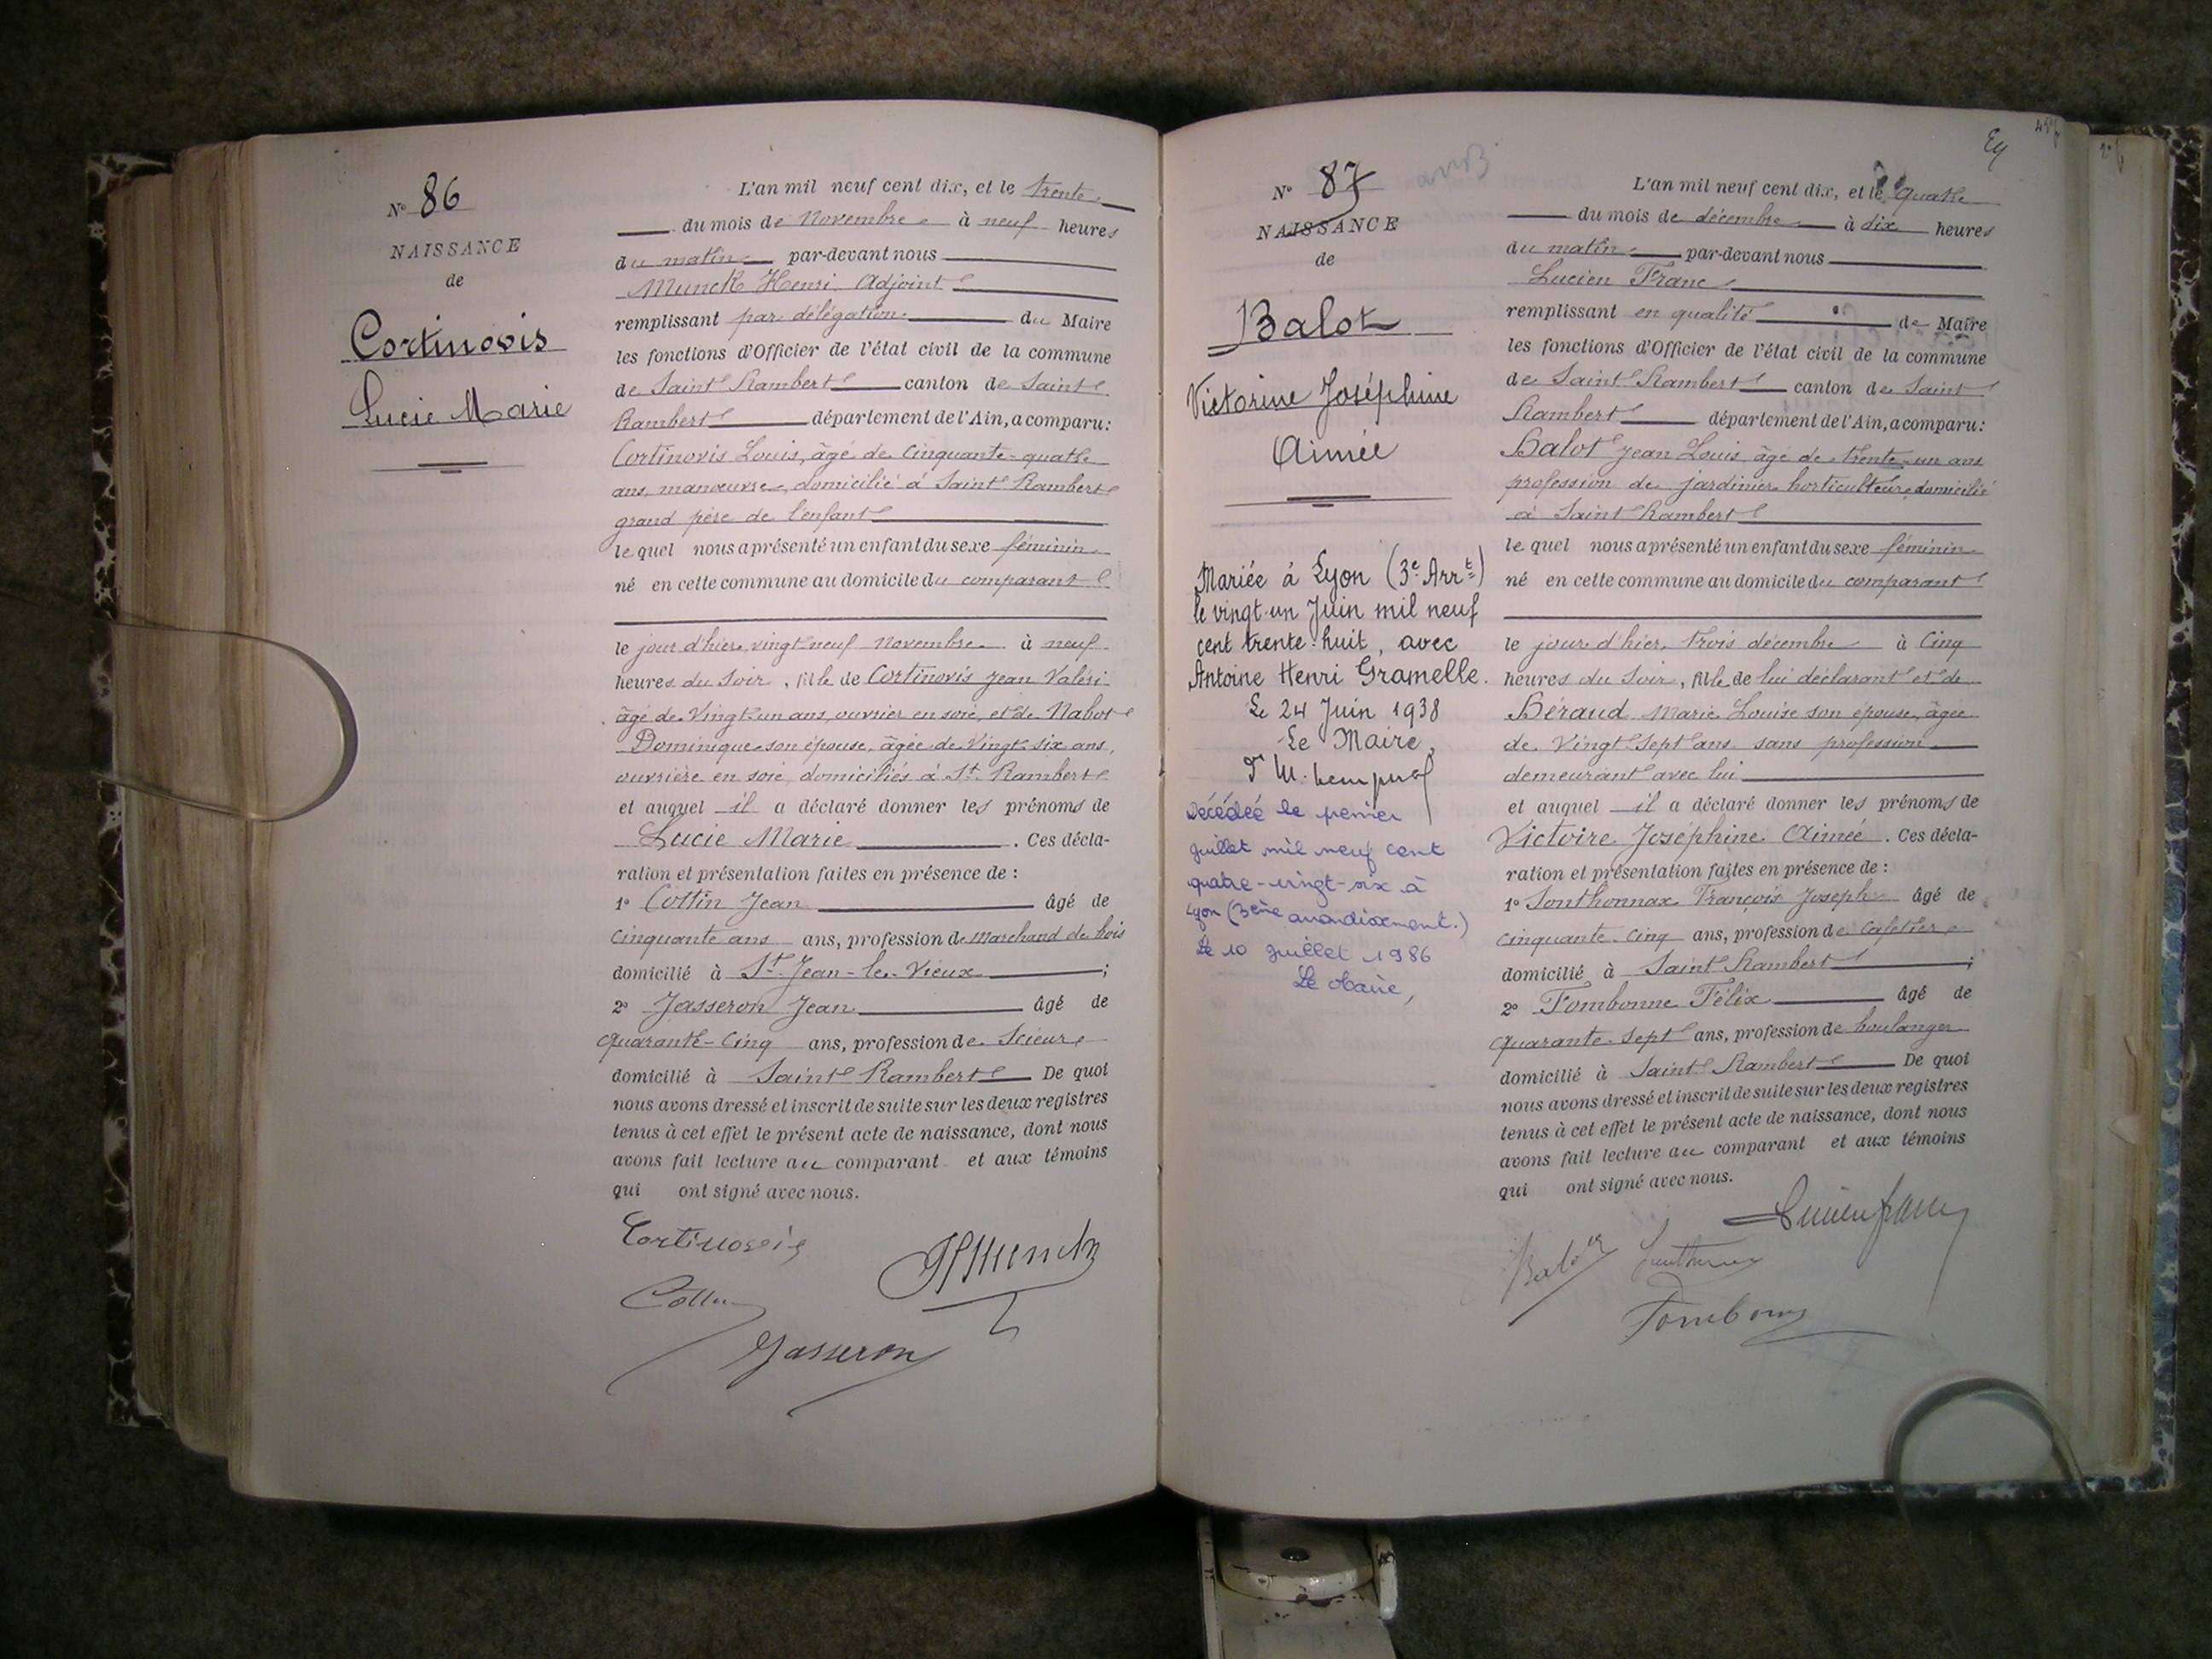 Nº 86
NAISSANCE
de
Cortinovis
Lucie Marie
L'an mil neuf cent dix, et le trente
du mois de Novembre à neuf heures
du matin par-devant nous
Munck Henri Adjoint
remplissant par délégation du Maire
les fonctions d'Officier de l'état civil de la commune
de Saint Rambert canton de Saint
Rambert département de l'Ain, a comparu:
Cortinovis Louis, âgé de Cinquante-quatre
ans, manœuvre, domicilié à Saint Rambert
grand père de l'enfant
le quel nous a présenté un enfant du sexe féminin
né en cette commune au domicile du comparant
le jour d'hier vingt neuf Novembre à neuf
heures du soir, fille de Cortinovis Jean Valéri
âgé de Vingt-un ans, ouvrier en soie, et de Nabot
Dominique son épouse, âgée de Vingt-six ans,
ouvrière en soie, domiciliés à St Rambert
et auquel il a déclaré donner les prénoms de
Lucie Marie. Ces décla-
ration et présentation faites en présence de :
1º Cottin Jean âgé de
cinquante ans ans, profession de Marchand de bois
domicilié à St Jean-le-Vieux ;
2º Jasseron Jean âgé de
Quarante-Cinq ans, profession de Scieur
domicilié à Saint Rambert De quoi
nous avons dressé et inscrit de suite sur les deux registres
tenus à cet effet le présent acte de naissance, dont nous
avons fait lecture au comparant et aux témoins
qui ont signé avec nous.
Cortinovis
HMunck
Cottin
Jasseron
Eq
Nº 87
NAISSANCE
de
Balot
Victorine Joséphine
Aimée
Mariée à Lyon (3e Arrt)
le vingt-un Juin mil neuf
cent trente-huit, avec
Antoine Henri Gramelle.
Le 24 Juin 1938
Le Maire,
Décédée le premier
juillet mil neuf cent
quatre-vingt-six à
Lyon (3ème arrondissement.)
Le 10 juillet 1986
Le Maire,
L'an mil neuf cent dix, et le quatre
du mois de décembre à dix heures
du matin par-devant nous
Lucien Franc
remplissant en qualité de Maire
les fonctions d'Officier de l'état civil de la commune
de Saint Rambert canton de Saint
Rambert département de l'Ain, a comparu:
Balot Jean Louis, âgé de trente-un ans
profession de jardinier horticulteur domicilié
à Saint Rambert
le quel nous a présenté un enfant du sexe féminin
né en cette commune au domicile du comparant
le jour d'hier, trois décembre à Cinq
heures du soir, fille de lui déclarant et de
Béraud Marie Louise son épouse, âgée
de Vingt-Sept ans sans profession
demeurant avec lui
et auquel il a déclaré donner les prénoms de
Victoire Joséphine Aimée. Ces décla-
ration et présentation faites en présence de :
1º Sonthonnax François Joseph âgé de
cinquante-cinq ans, profession de Cafetier
domicilié à Saint Rambert ;
2º Fombonne Félix âgé de
quarante-sept ans, profession de boulanger
domicilié à Saint Rambert De quoi
nous avons dressé et inscrit de suite sur les deux registres
tenus à cet effet le présent acte de naissance, dont nous
avons fait lecture au comparant et aux témoins
qui ont signé avec nous.
Lucien franc
Balot
Fombonne